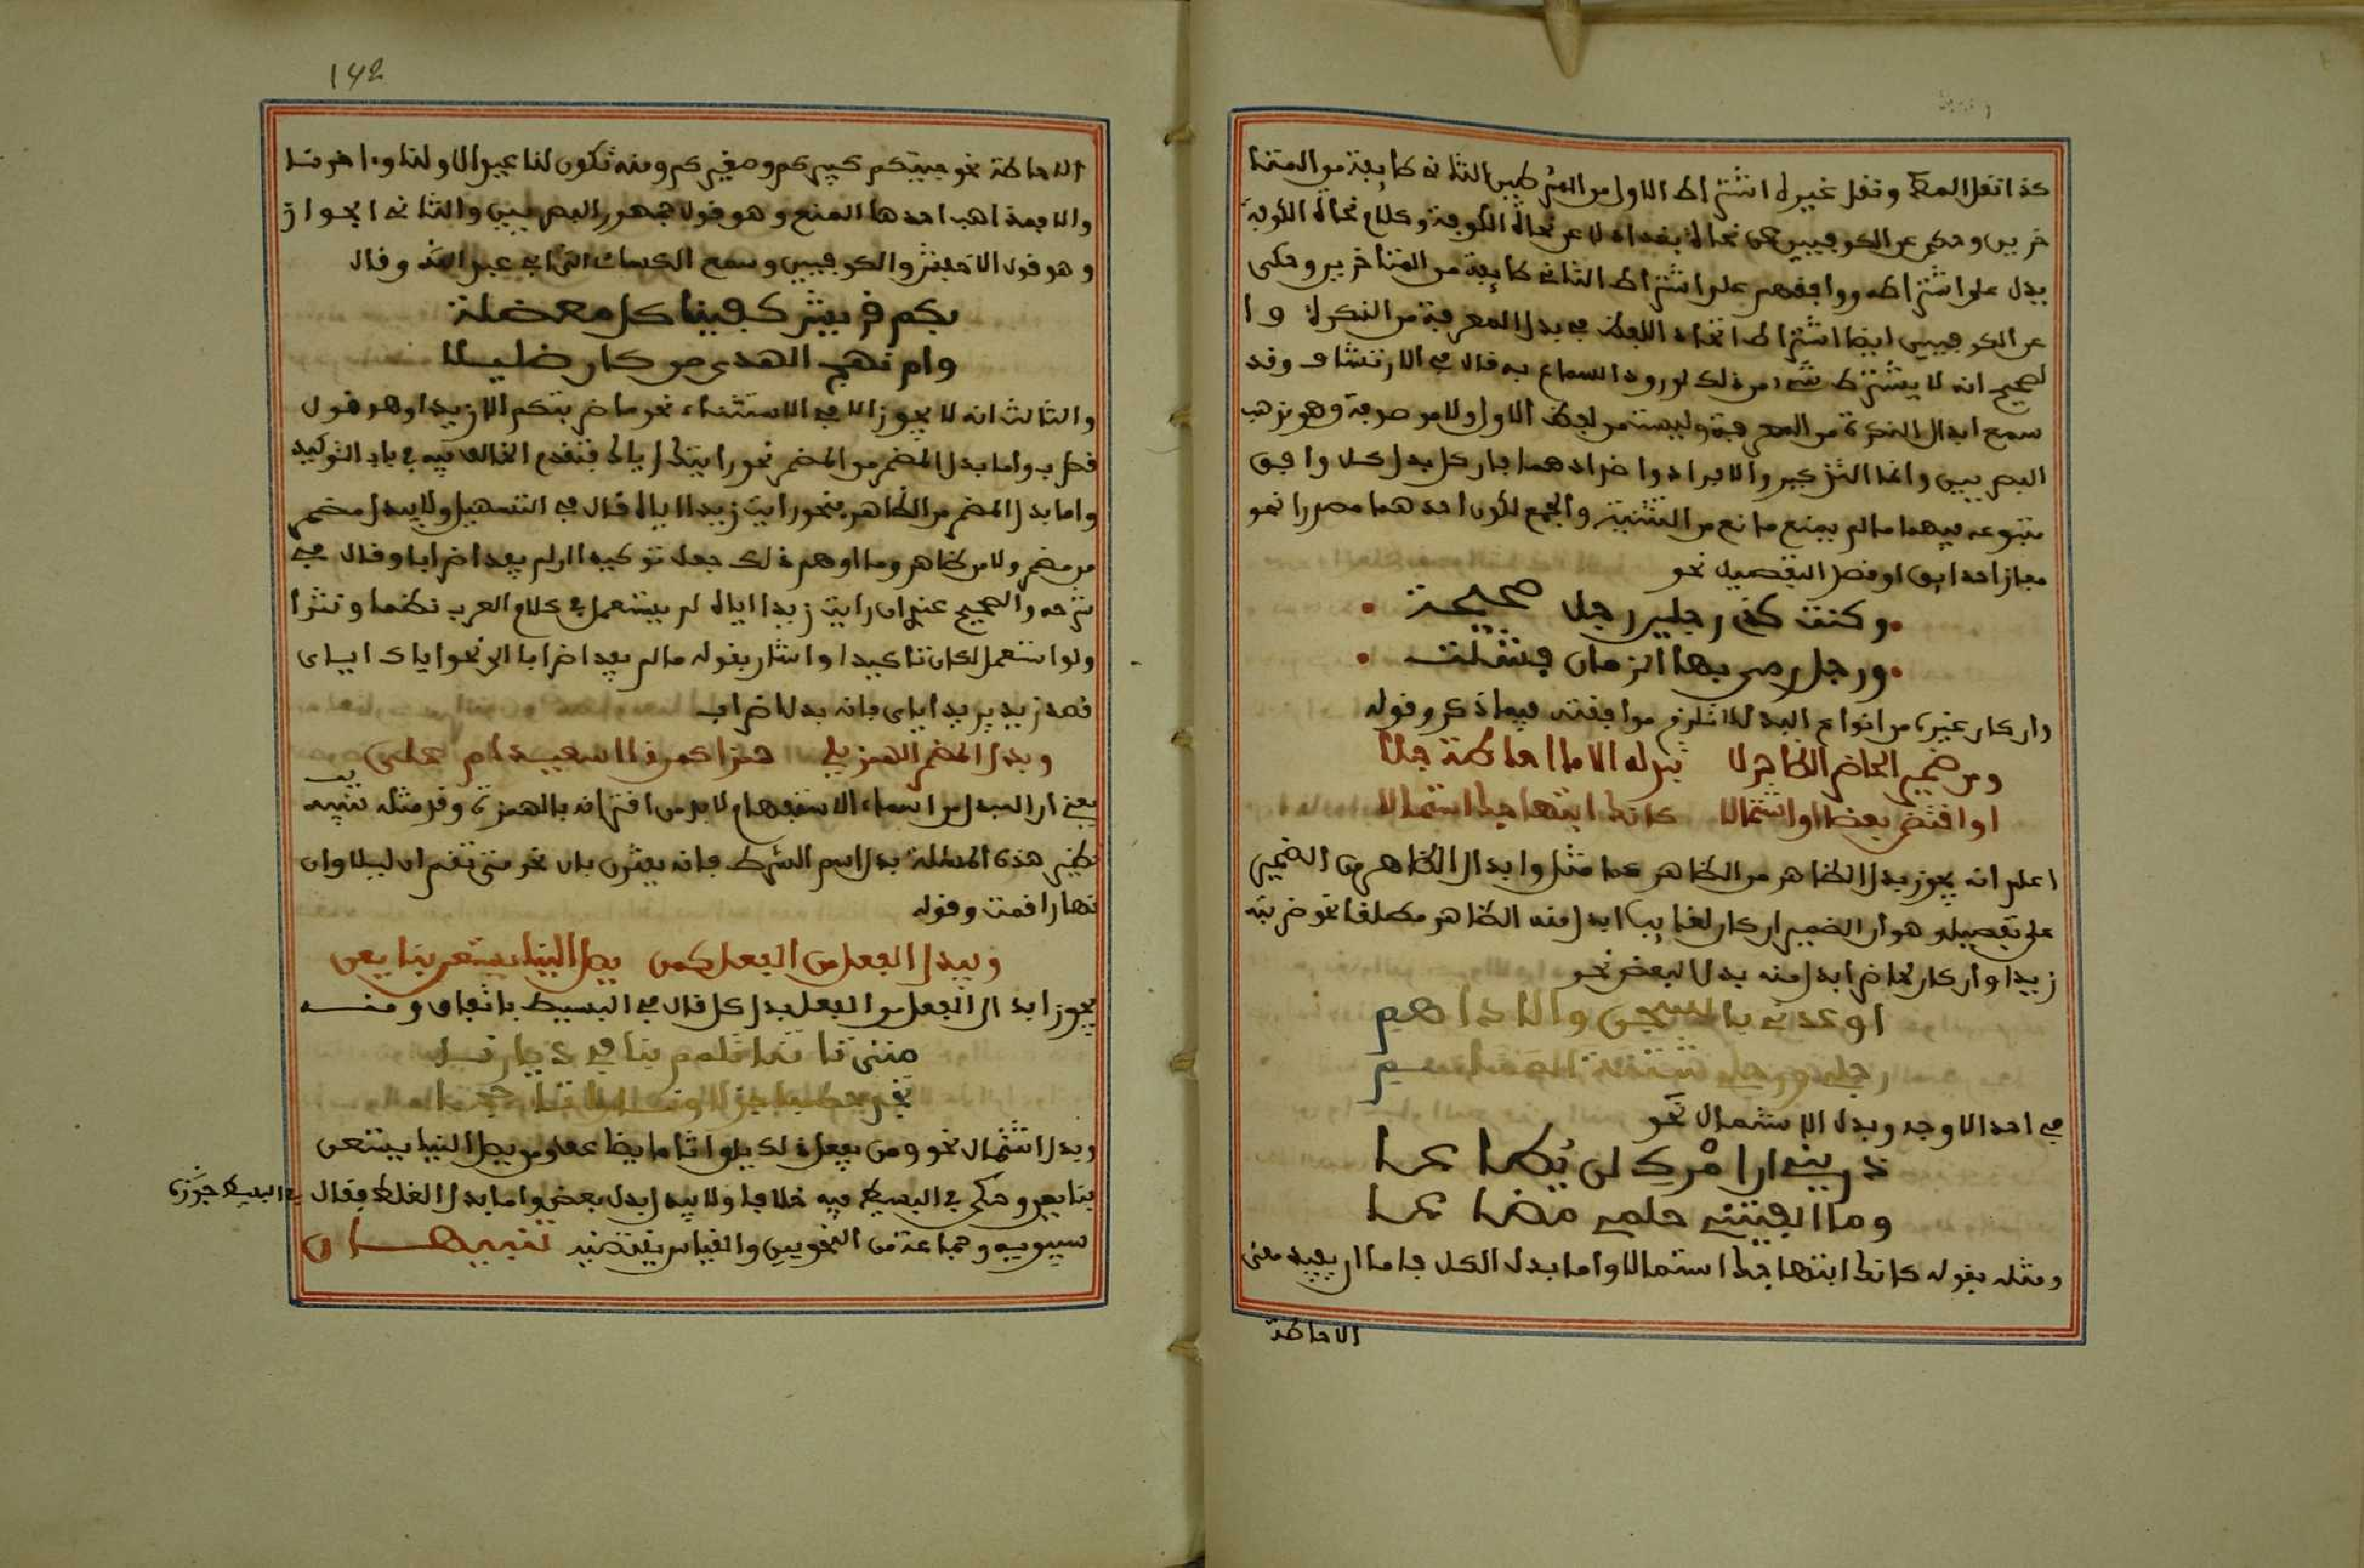 كذا نقل المص ونقل غيره اشتراط الاول من الشرطين الثاني طايفة من المتا
خرين وحكى عن الكوفيين عن نحاة بغداد لا عن نحاة الكوفة وكلام نحاة الكوفة
يدل على اشتراطه ووافقهم على اشتراط الثاني طايفة من المتاخرين وحكى
عن الكوفيين ايضا اشتراط اتحاد اللفظ في بدل المعرفة من النكرة وا
لصحيح انه لا يشترط شيء من ذلك لورود السماع به قال في الارتشاف وقد
سمع ابدال النكرة من المعرفة وليست من لفظ الاول ولا موصوفة وهو مذهب
البصريين واما التذكير والافراد واضدادهما فان كان بدل كل وافق
متبوعه فيهما ما لم يمنع مانع من التثنية والجمع لكون احدهما مصدرا نحو
مفازا حدايق او قصد التفصيل نحو
وكنت كذي رجلين رجل صحيحة
ورجل رمى بها الزمان فشلت
وان كان غيره من انواع البدل لم تلزم موافقته فيما ذكر وقوله
ومن ضمير الحاضر الظاهر لا تبدله الا ما احاطة جلا
او اقتضى بعضا او اشتمالا كانك ابتهاجك استمالا
اعلم انه يجوز بدل الظاهر من الظاهر كما مثل وابدال الظاهر من الضمير
على تفصيل وهو ان الضمير ان كان لغايب ابدل منه الظاهر مطلقا نحو ضربته
زيدا وان كان لحاضر ابدل منه بدل البعض نحو
اوعدني بالسجن والاداهم
رجلي ورجلي شثنة المناسم
في احد الاوجه وبدل الاشتمال نحو
ذريني ان امرك لن يطاعا
وما الفيتني حلمي مضاعا
ومثله بقوله كانك ابتهاجك استمالا واما بدل الكل فاما ان يفيد معنى
الاحاطة
142
الاحاطة نحو جيتكم كبيركم وصغيركم ومنه تكون لنا عيدا لاولنا واخرنا
والا فمذاهب احدها المنع وهو قول جمهور البصريين والثاني الجواز
وهو قول الاخفش والكوفيين وسمع الكساي الى ابي عبد الله وقال
بكم قريش كفينا كل معضلة
وام نهج الهدى من كان ضليلا
والثالث انه لا يجوز الا في الاستثناء نحو ما ضربتكم الا زيدا وهو قول
قطرب واما بدل المضمر من المضمر نحو رايتك اياك فتقدم الخلاف فيه في باب التوكيد
واما بدل المضمر من الظاهر نحو رايت زيدا اياه قال في التسهيل ولا يبدل مضمر
من مضمر ولا من ظاهر وما اوهم ذلك جعل توكيدا ان لم يفد اضرابا وقال في
شرحه والصحيح عندي ان رايت زيدا اياه لم يستعمل في كلام العرب نظما ونثرا
ولو استعمل لكان تاكيدا واشار بقوله ما لم يفد اضرابا الى نحو اياك اياي
قصد زيد بريد اياي فانه بدل اضراب
وبدل المضمن الهمز يلي همزا كمن ذا اسعيد ام علي
يعني ان المبدل من اسماء الاستفهام لا بد من اقترانه بالهمزة وقد مثله تنبيه
نظير هذه المسئلة بدل اسم الشرط فانه يقترن بان نحو متى تقم ان ليلا وان
نهارا قمت وقوله
ويبدل الفعل من الفعل كمن يصل الينا يستعن بنا يعن
يجوز ابدال الفعل من الفعل بدل كل قال في البسيط باتفاق ومنه
متى تاتنا تلمم بنا في ديارنا
تجد حطبا جزلا ونارا تاججا
وبدل اشتمال نحو ومن يفعل ذلك يلق اثاما يضاعف ومن يصل الينا يستعن
بنا يعن وحكى في البسيط فيه خلافا ولا يبدل بدل بعض واما بدل الغلط فقال في البسيط جوزه
سيبويه وجماعة من النحويين والقياس يقتضيه تنبيهان